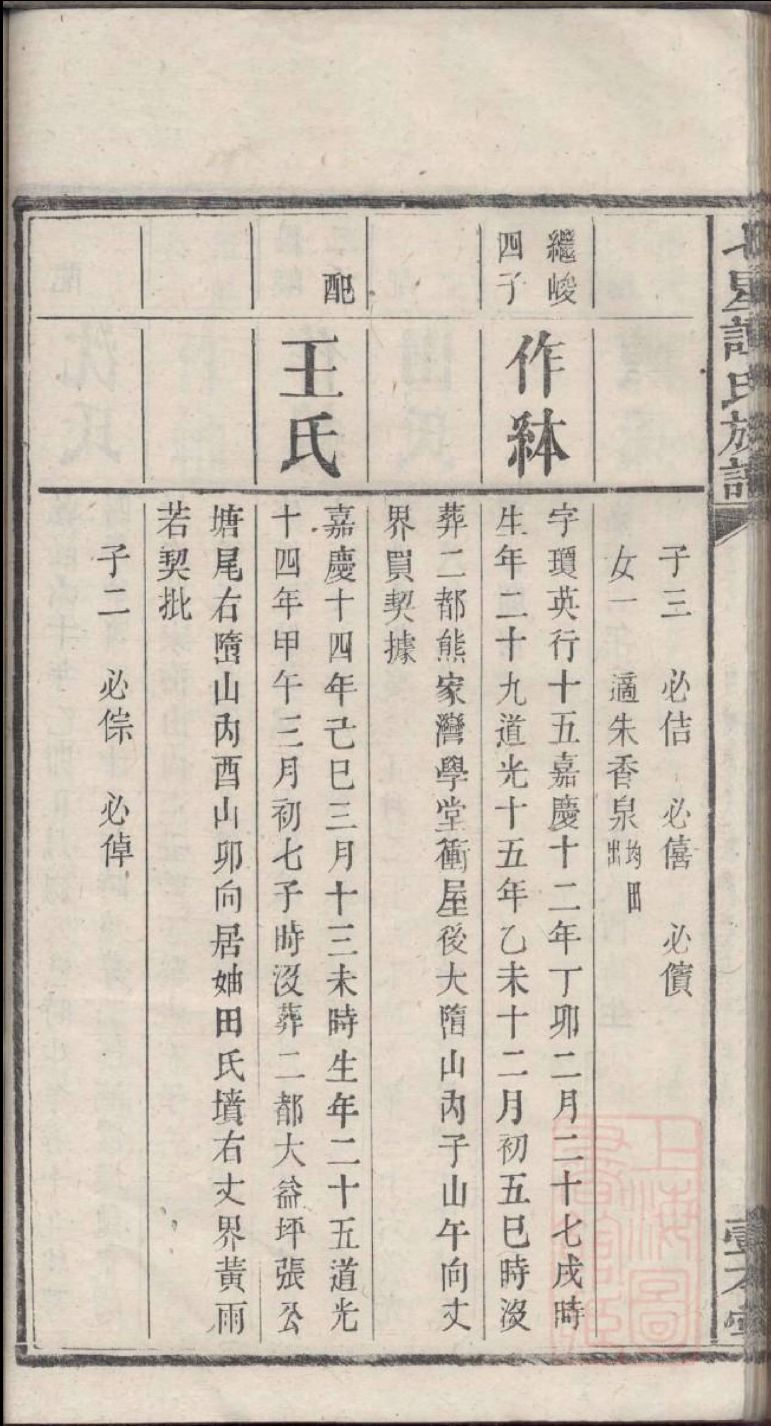 七星譚氏族譜
壹本堂
子三 必佶 必僖 必儐
女一 適朱香泉 均田出
繼峻
四子
作䋛
字瓊英行十五嘉慶十二年丁卯二月二十七戌時
生年二十九道光十五年乙未十二月初五巳時沒
葬二都熊家灣學堂衝屋後大墮山內子山午向丈
界買契據
配
王氏
嘉慶十四年己巳三月十三未時生年二十五道光
十四年甲午三月初七子時沒葬二都大益坪張公
塘尾右墮山內酉山卯向居妯田氏墳右丈界黃雨
若契批
子二 必倧 必倬
上海圖書館藏